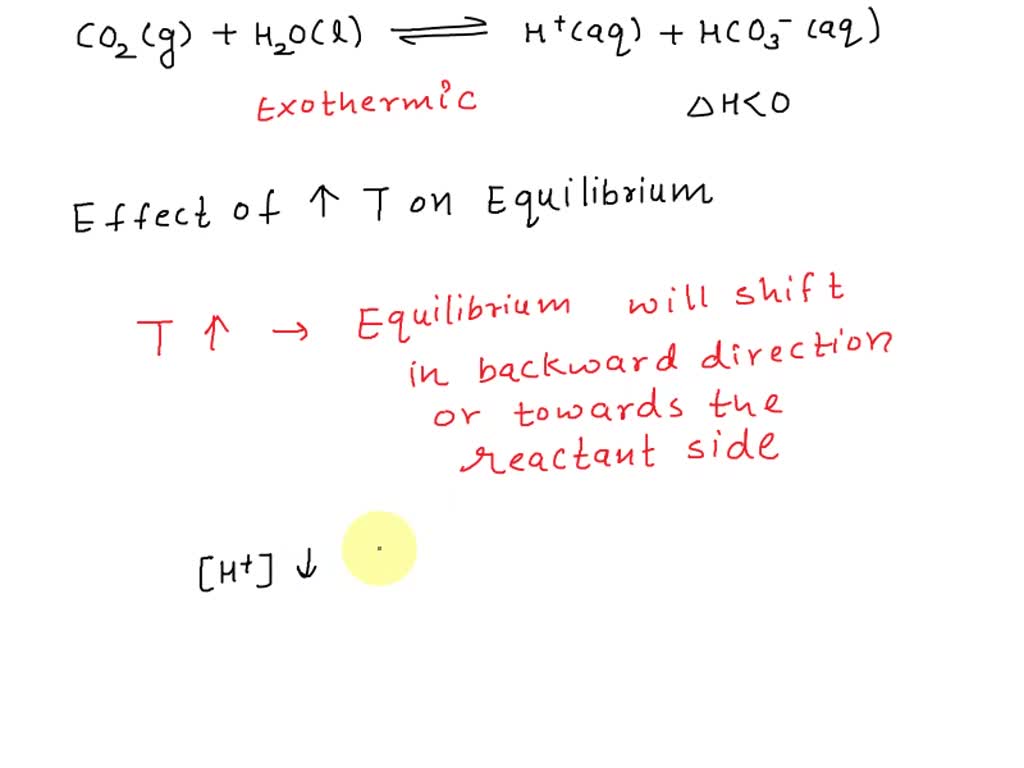 CO₂(g) + H₂O(l) ⇌ H⁺(aq) + HCO₃⁻(aq)
Exothermic ΔH<0
Effect of ↑ T on Equilibrium
T ↑ → Equilibrium will shift
in backward direction
or towards the
reactant side
[H⁺] ↓